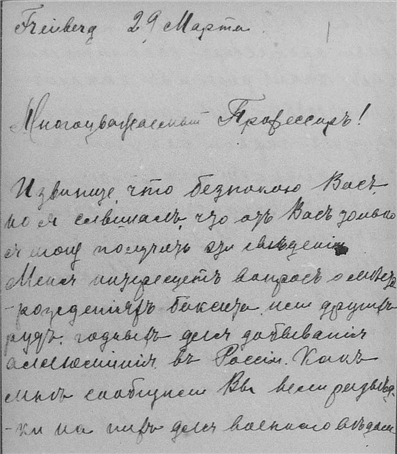 Freiberg 29 Марта
Многоуважаемый Профессоръ!
Извините, что безпокою Васъ,
но я слышалъ, что отъ Васъ только
я могу получить эти сведения
Меня интересуетъ вопросъ о место
-рожденіяхъ боксита, или другихъ
рудъ, годныхъ для добыванія
алюминія въ Россіи. Какъ
мнѣ сообщили Вы вели развѣд-
-ки на нихъ для военного вѣдом